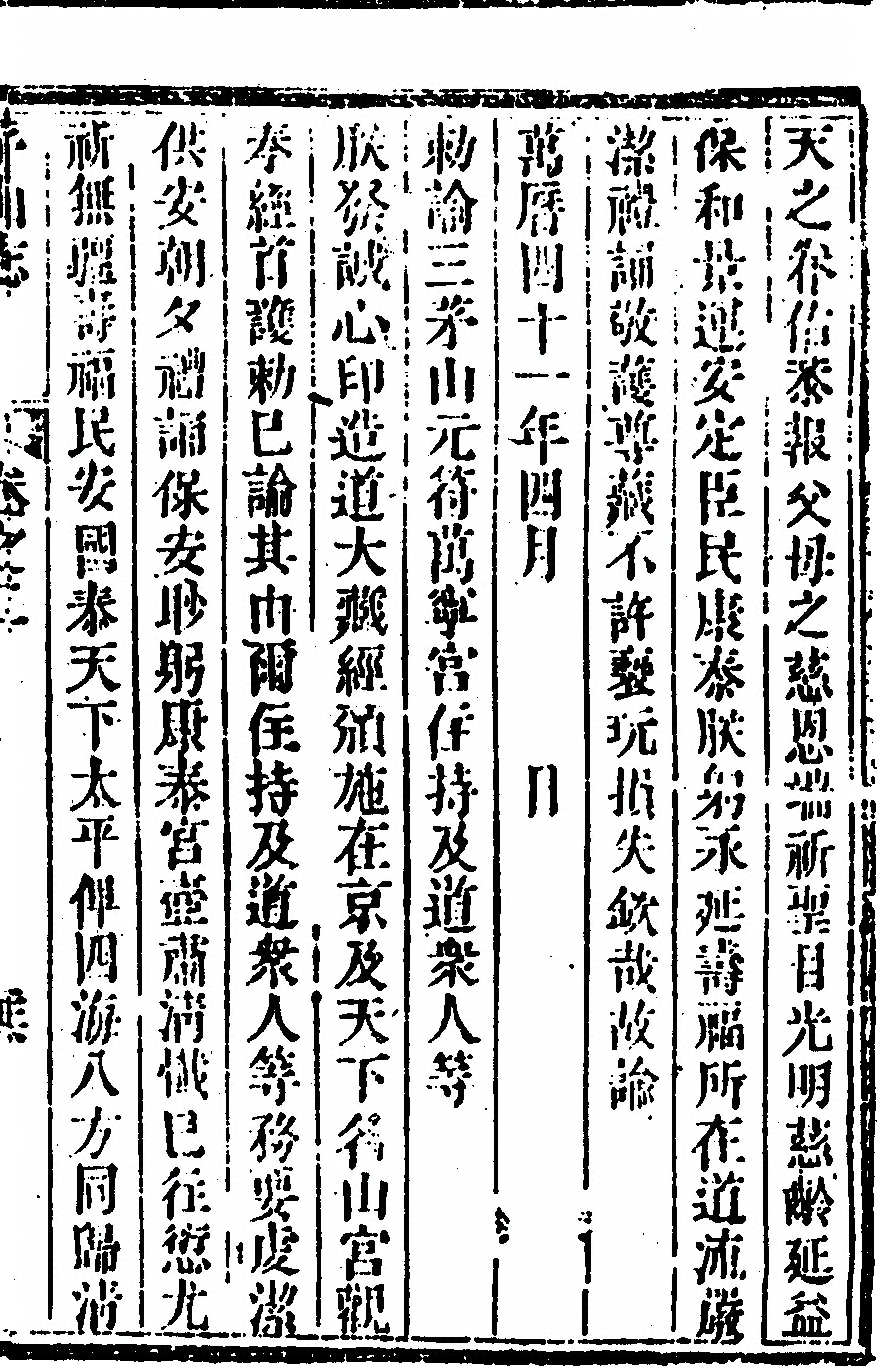 天之眷佑恭報父母之慈恩端祈聖目光明慈齡延益
保和景運安定臣民康泰朕躬永延壽福所在道流嚴
潔禮誦敬護尊藏不許褻玩損失欽哉故諭
萬曆四十一年四月　日
勅諭三茅山元符萬寧宮住持及道衆人等
朕發誠心印造道大藏經頒施在京及天下名山宮觀
奉經首護勅已諭其巾爾住持及道衆人等務要虔潔
供安朝夕禮誦保安眇躬康泰宮壼肅清懺已往愆尤
祈無疆壽福民安國泰天下太平俾四海八方同歸清
茅山志